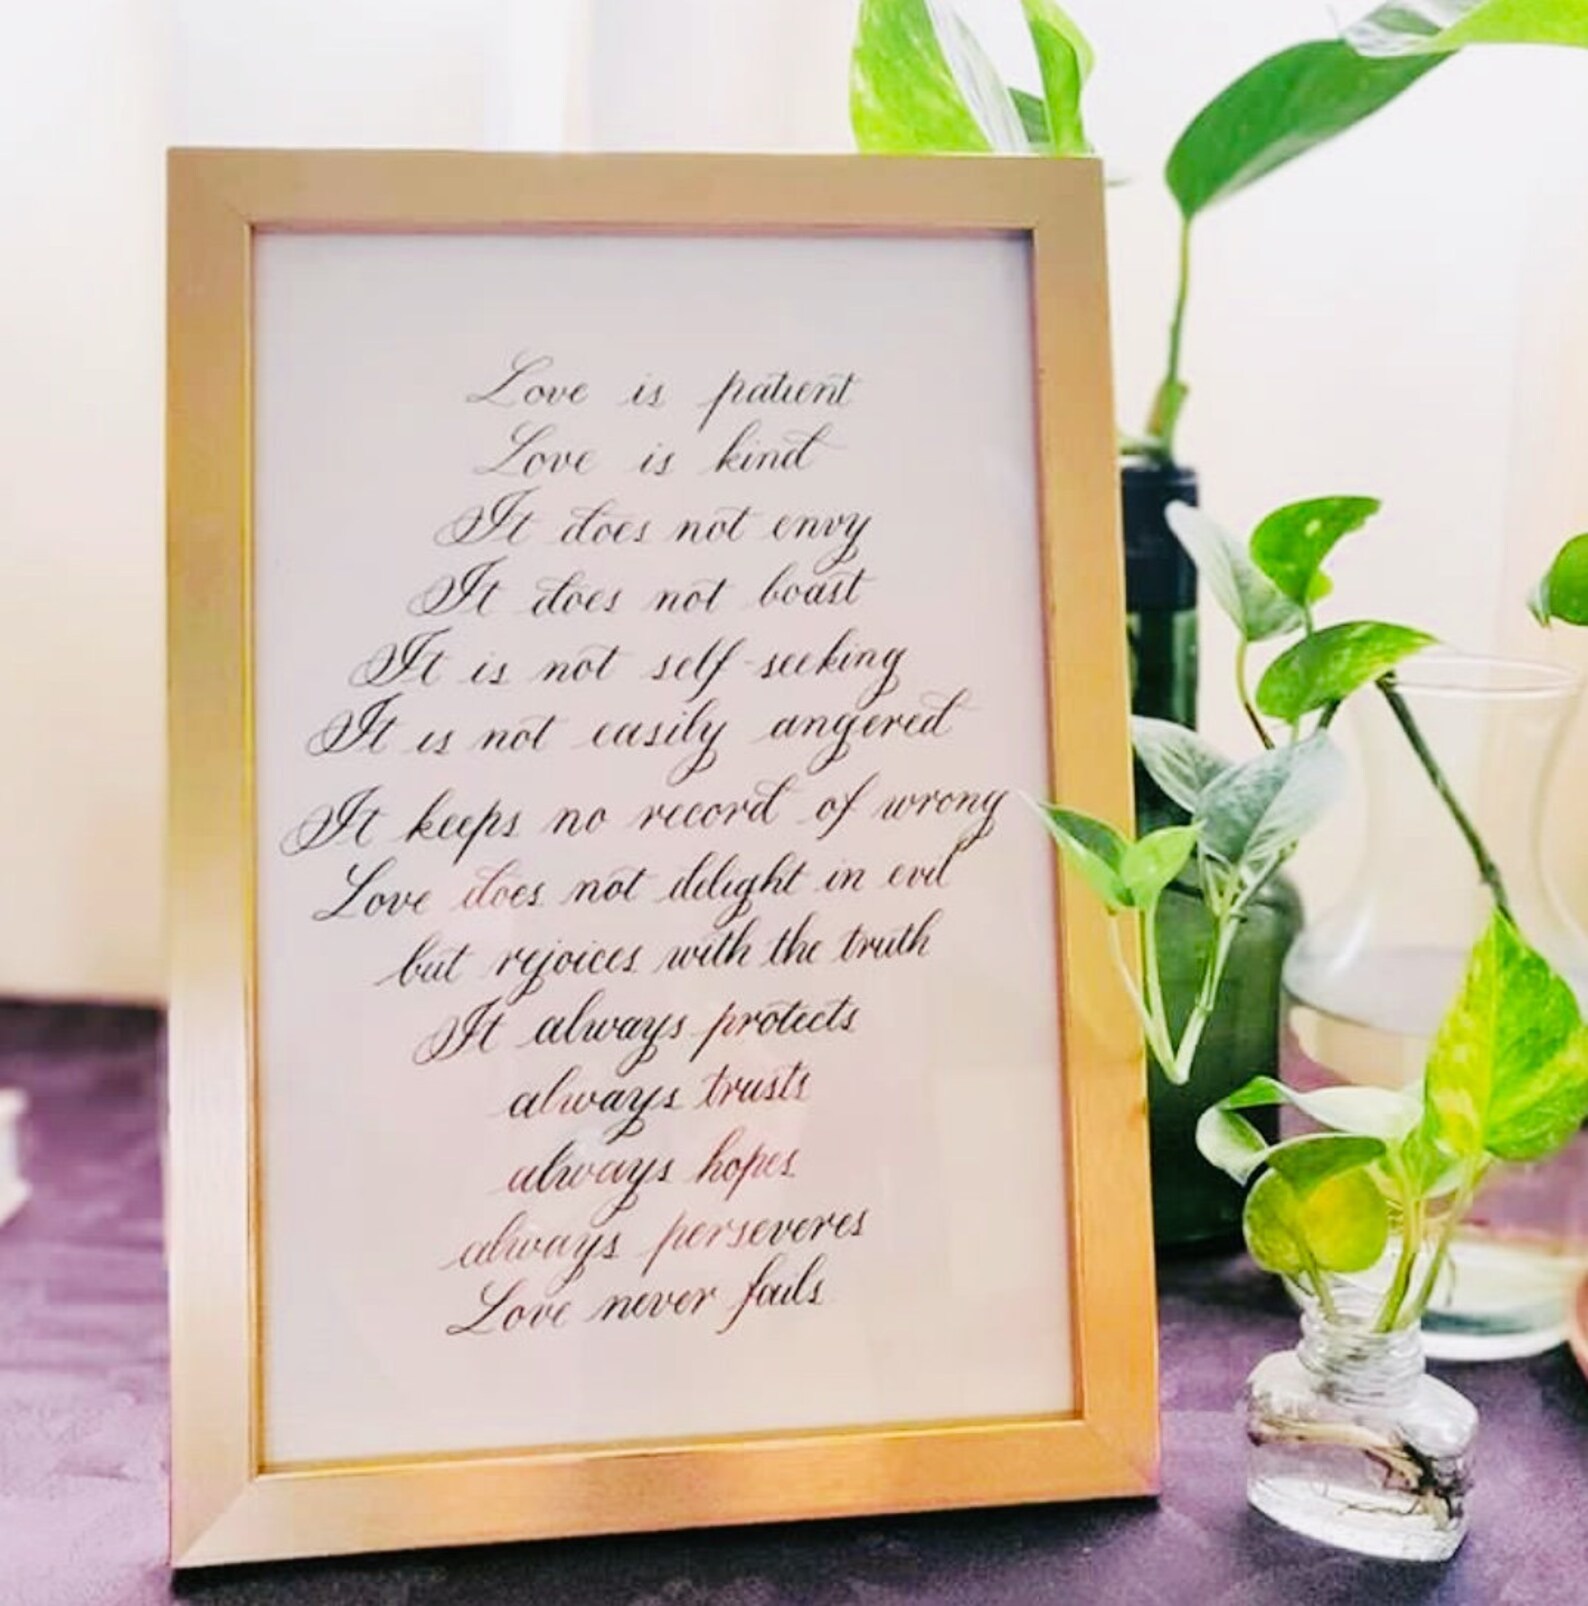 Love is patient
Love is kind
It does not envy
It does not boast
It is not self-seeking
It is not easily angered
It keeps no record of wrong
Love does not delight in evil
but rejoices with the truth
It always protects
always trusts
always hopes
always perseveres
Love never fails